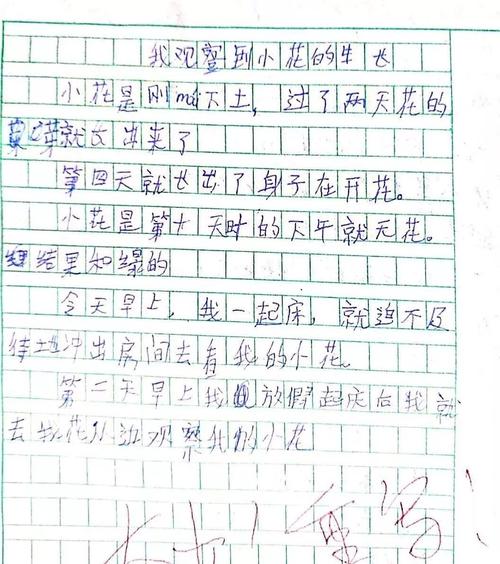 我观察到小花的生长
小花是刚mai下土，过了两天花的
芽就长出来了
第四天就长出了身子在开花。
小花是第十天时的下午就无花。
结果和绿的
今天早上，我一起床，就迫不及
待地冲出房间去看我的小花。
第二天早上我放假起床后我就
去 花 观察我的小花
重写！